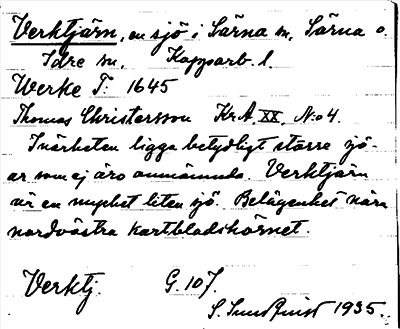 Verktjärn, en sjö i Särna sn, Särna o.
Idre sn, Kopparb. l.
Werke T: 1645
Thomas Christersson Kr.A. XX, No 4.
I närheten ligga betydligt större sjö-
ar som ej äro omnämnda. Verktjärn
är en mycket liten sjö. Belägenhet nära
nordvästra kartbladshörnet.
Verktj. G. 107.
S. Sundquist 1935.